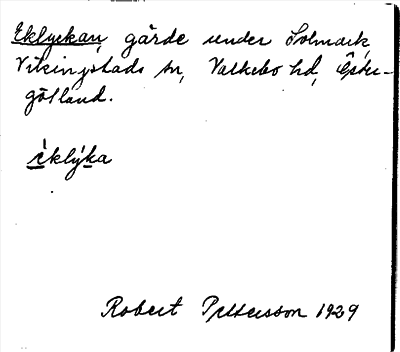 Eklyckan, gärde under Solmark,
Vikingstads sn, Valkebo hd, Öster-
götland.
èklýka
Robert Pettersson 1929